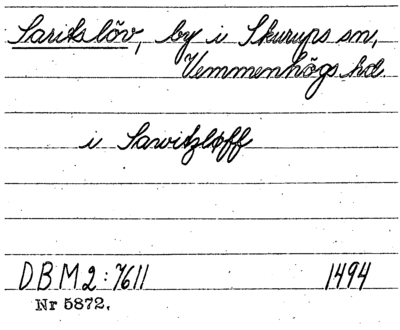 Saritslöv, by i Skurups sn,
Vemmenhögs hd
i Sawitzløff
DBM2:7611 1494
Nr 5872.